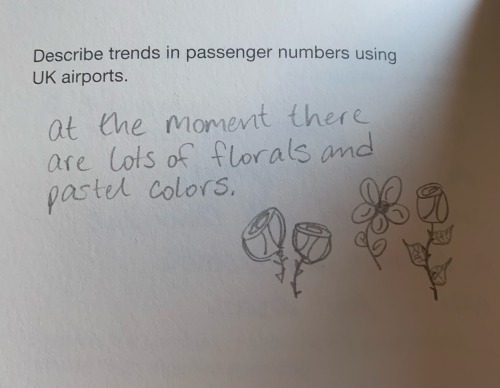 Describe trends in passenger numbers using
UK airports.
at the moment there
are lots of florals and
pastel colors.